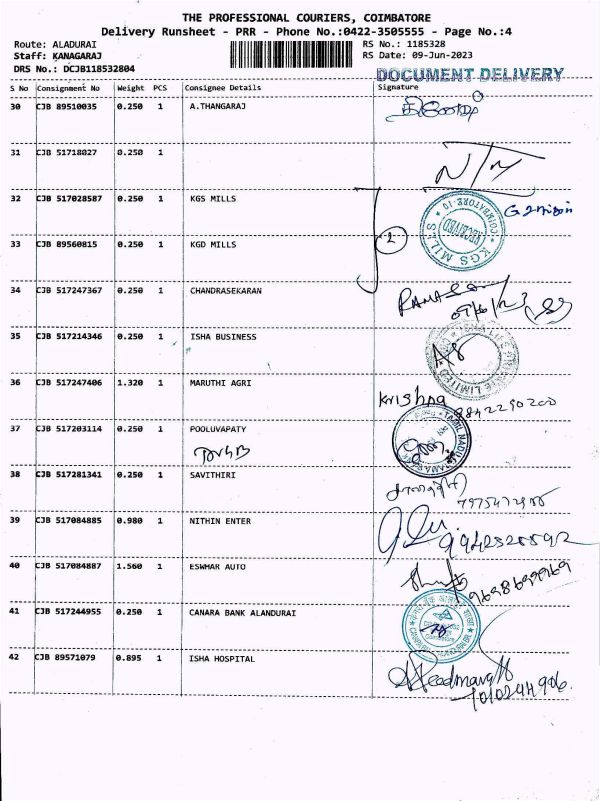 THE PROFESSIONAL COURIERS, COIMBATORE
Delivery Runsheet - PRR - Phone No.:0422-3505555 - Page No.:4
Route: ALADURAI RS No.: 1185328
Staff: KANAGARAJ RS Date: 09-Jun-2023
DRS No.: DCJB118532804
DOCUMENT DELIVERY
S No Consignment No Weight PCS Consignee Details Signature
30 CJB 89510035 0.250 1 A.THANGARAJ
31 CJB 51718027 0.250 1
32 CJB 517028587 0.250 1 KGS MILLS
COIMBATORE-10
RECEIVED
KGS MILLS
33 CJB 89560815 0.250 1 KGD MILLS 2
34 CJB 517247367 0.250 1 CHANDRASEKARAN
35 CJB 517214346 0.250 1 ISHA BUSINESS
36 CJB 517247406 1.320 1 MARUTHI AGRI Krishna
9842290200
37 CJB 517203114 0.250 1 POOLUVAPATY
TAMIL NADU
38 CJB 517281341 0.250 1 SAVITHIRI
39 CJB 517084885 0.980 1 NITHIN ENTER
40 CJB 517084887 1.560 1 ESWHAR AUTO
41 CJB 517244955 0.250 1 CANARA BANK ALANDURAI
42 CJB 89571079 0.895 1 ISHA HOSPITAL